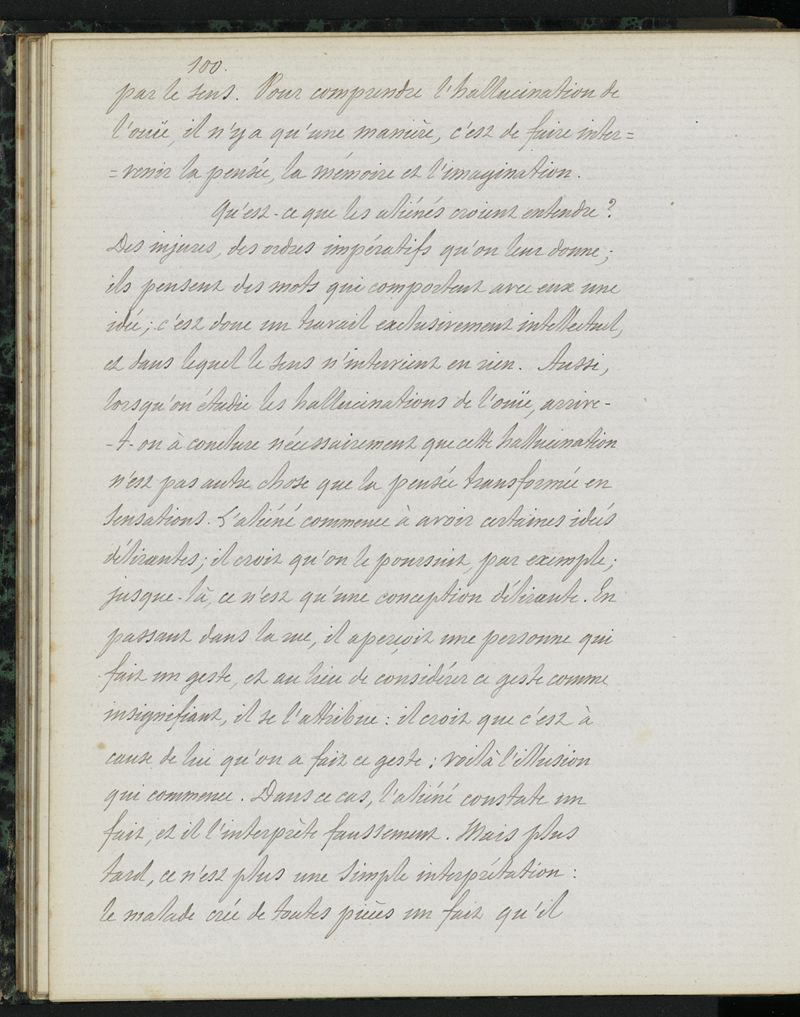 100.
par le sens. Pour comprendre l'hallucination de
l'ouïe, il n'y a qu'une manière, c'est de faire inter=
=venir la pensée, la mémoire et l'imagination.
Qu'est-ce que les aliénés croient entendre?
Des injures, des ordres impératifs qu'on leur donne;
ils pensent des mots qui comportent avec eux une
idée; c'est donc un travail exclusivement intellectuel,
et dans lequel le sens n'intervient en rien. Aussi,
lorsqu'on étudie les hallucinations de l'ouïe, arrive-
-t-on à conclure nécessairement que cette hallucination
n'est pas autre chose que la pensée transformée en
sensations. L'aliéné commence à avoir certaines idées
délirantes; il croit qu'on le poursuit, par exemple;
jusque-là, ce n'est qu'une conception délirante. En
passant dans la rue, il aperçoit une personne qui
fait un geste, et au lieu de considérer ce geste comme
insignifiant, il se l'attribue: il croit que c'est à
cause de lui qu'on a fait ce geste; voilà l'illusion
qui commence. Dans ce cas, l'aliéné constate un
fait, et il l'interprète faussement. Mais plus
tard, ce n'est plus une simple interprétation:
le malade crée de toutes pièces un fait qu'il